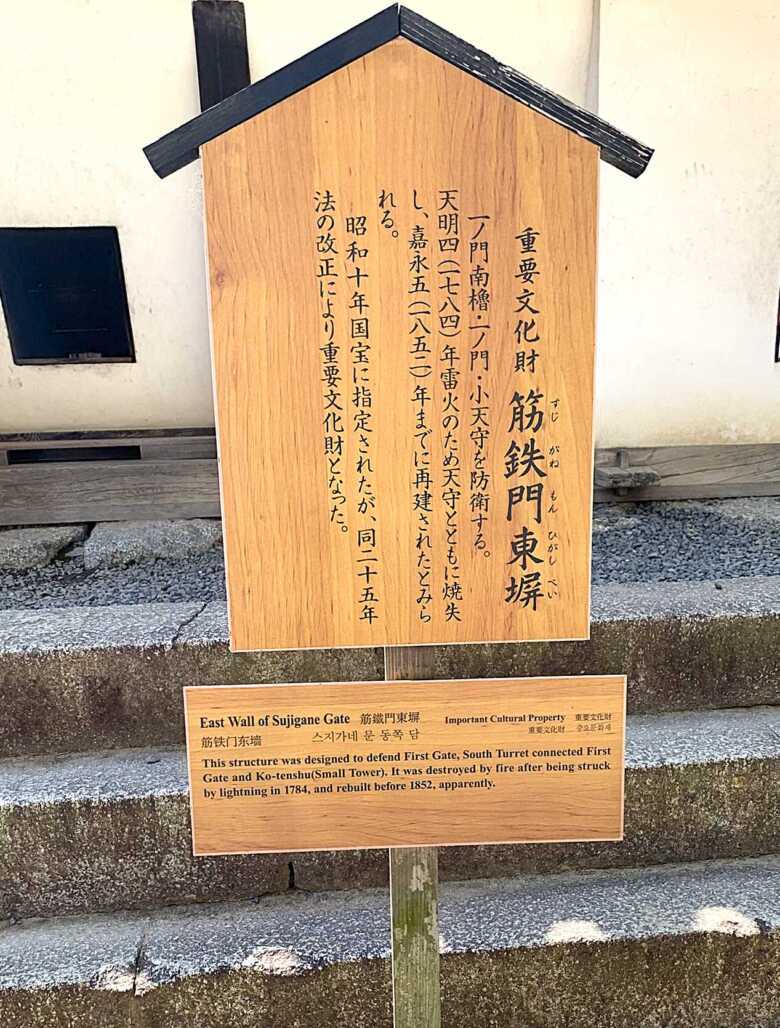 重要文化財 筋鉄門東塀
すじ がね もん ひがし べい
一ノ門南櫓・一ノ門・小天守を防衛する。
天明四(一七八四)年雷火のため天守とともに焼失
し、嘉永五(一八五二)年までに再建されたとみら
れる。
昭和十年国宝に指定されたが、同二十五年
法の改正により重要文化財となった。
East Wall of Sujigane Gate 筋鐵門東塀 Important Cultural Property 重要文化財
筋铁门东墙 스지가네 문 동쪽 담 重要文化財 중요문화재
This structure was designed to defend First Gate, South Turret connected First
Gate and Ko-tenshu(Small Tower). It was destroyed by fire after being struck
by lightning in 1784, and rebuilt before 1852, apparently.